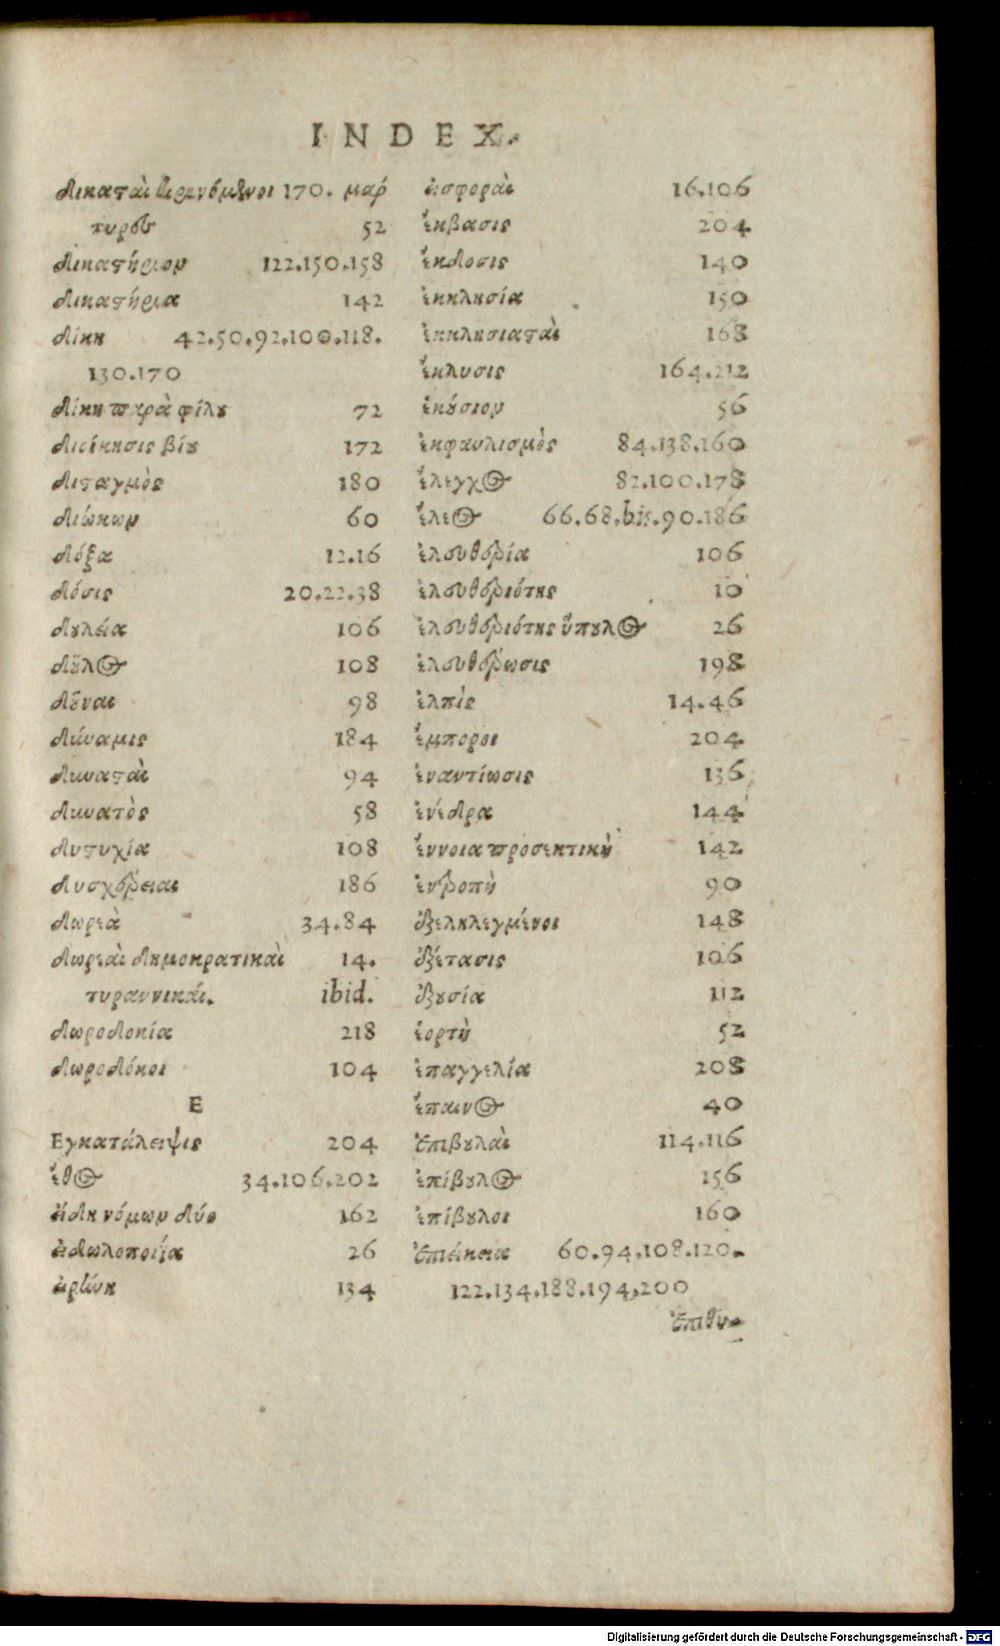 INDEX.
δικασταὶ κρινόμενοι 170. μαρ
τυρες 52
δικαστήριον 122.150.158
δικαστήρια 142
δίκη 42.50.92.100.118.
130.170
δίκη παρὰ φίλου 72
διοίκησις βίου 172
δισταγμὸς 180
διώκων 60
δόξα 12.16
δόσις 20.22.38
δουλεία 106
δοῦλος 108
δοῦναι 98
δύναμις 184
δυναταὶ 94
δυνατὸς 58
δυστυχία 108
δυσχέρειαι 186
δωρεὰ 34.84
δωρεαὶ δημοκρατικαὶ 14.
τυραννικάι. ibid.
δωροδοκία 218
δωροδόκοι 104
E
Εγκατάλειψις 204
ἔθος 34.106.202
εἴδη νόμων δύο 162
εἰδωλοποιΐα 26
εἰρήνη 134
εἰσφοραὶ 16.106
ἔκβασις 204
ἔκδοσις 140
ἐκκλησία 150
ἐκκλησιασταὶ 168
ἔκλυσις 164.212
ἑκούσιον 56
ἐκφαυλισμὸς 84.138.160
ἔλεγχος 82.100.178
ἔλεος 66.68.bis.90.186
ἐλευθερία 106
ἐλευθεριότης 10
ἐλευθεριότης ὕπουλος 26
ἐλευθέρωσις 198
ἐλπὶς 14.46
ἔμποροι 204
ἐναντίωσις 136
ἐνέδρα 144
ἔννοια προσεκτικὴ 142
ἐντροπὴ 90
ἐξεληλεγμένοι 148
ἐξέτασις 106
ἐξουσία 112
ἑορτὴ 52
ἐπαγγελία 208
ἔπαινος 40
ἐπιβουλαὶ 114.116
ἐπίβουλος 156
ἐπίβουλοι 160
ἐπιείκεια 60.94.108.120.
122.134.188.194.200
ἐπιθυ-
Digitalisierung gefördert durch die Deutsche Forschungsgemeinschaft - DFG